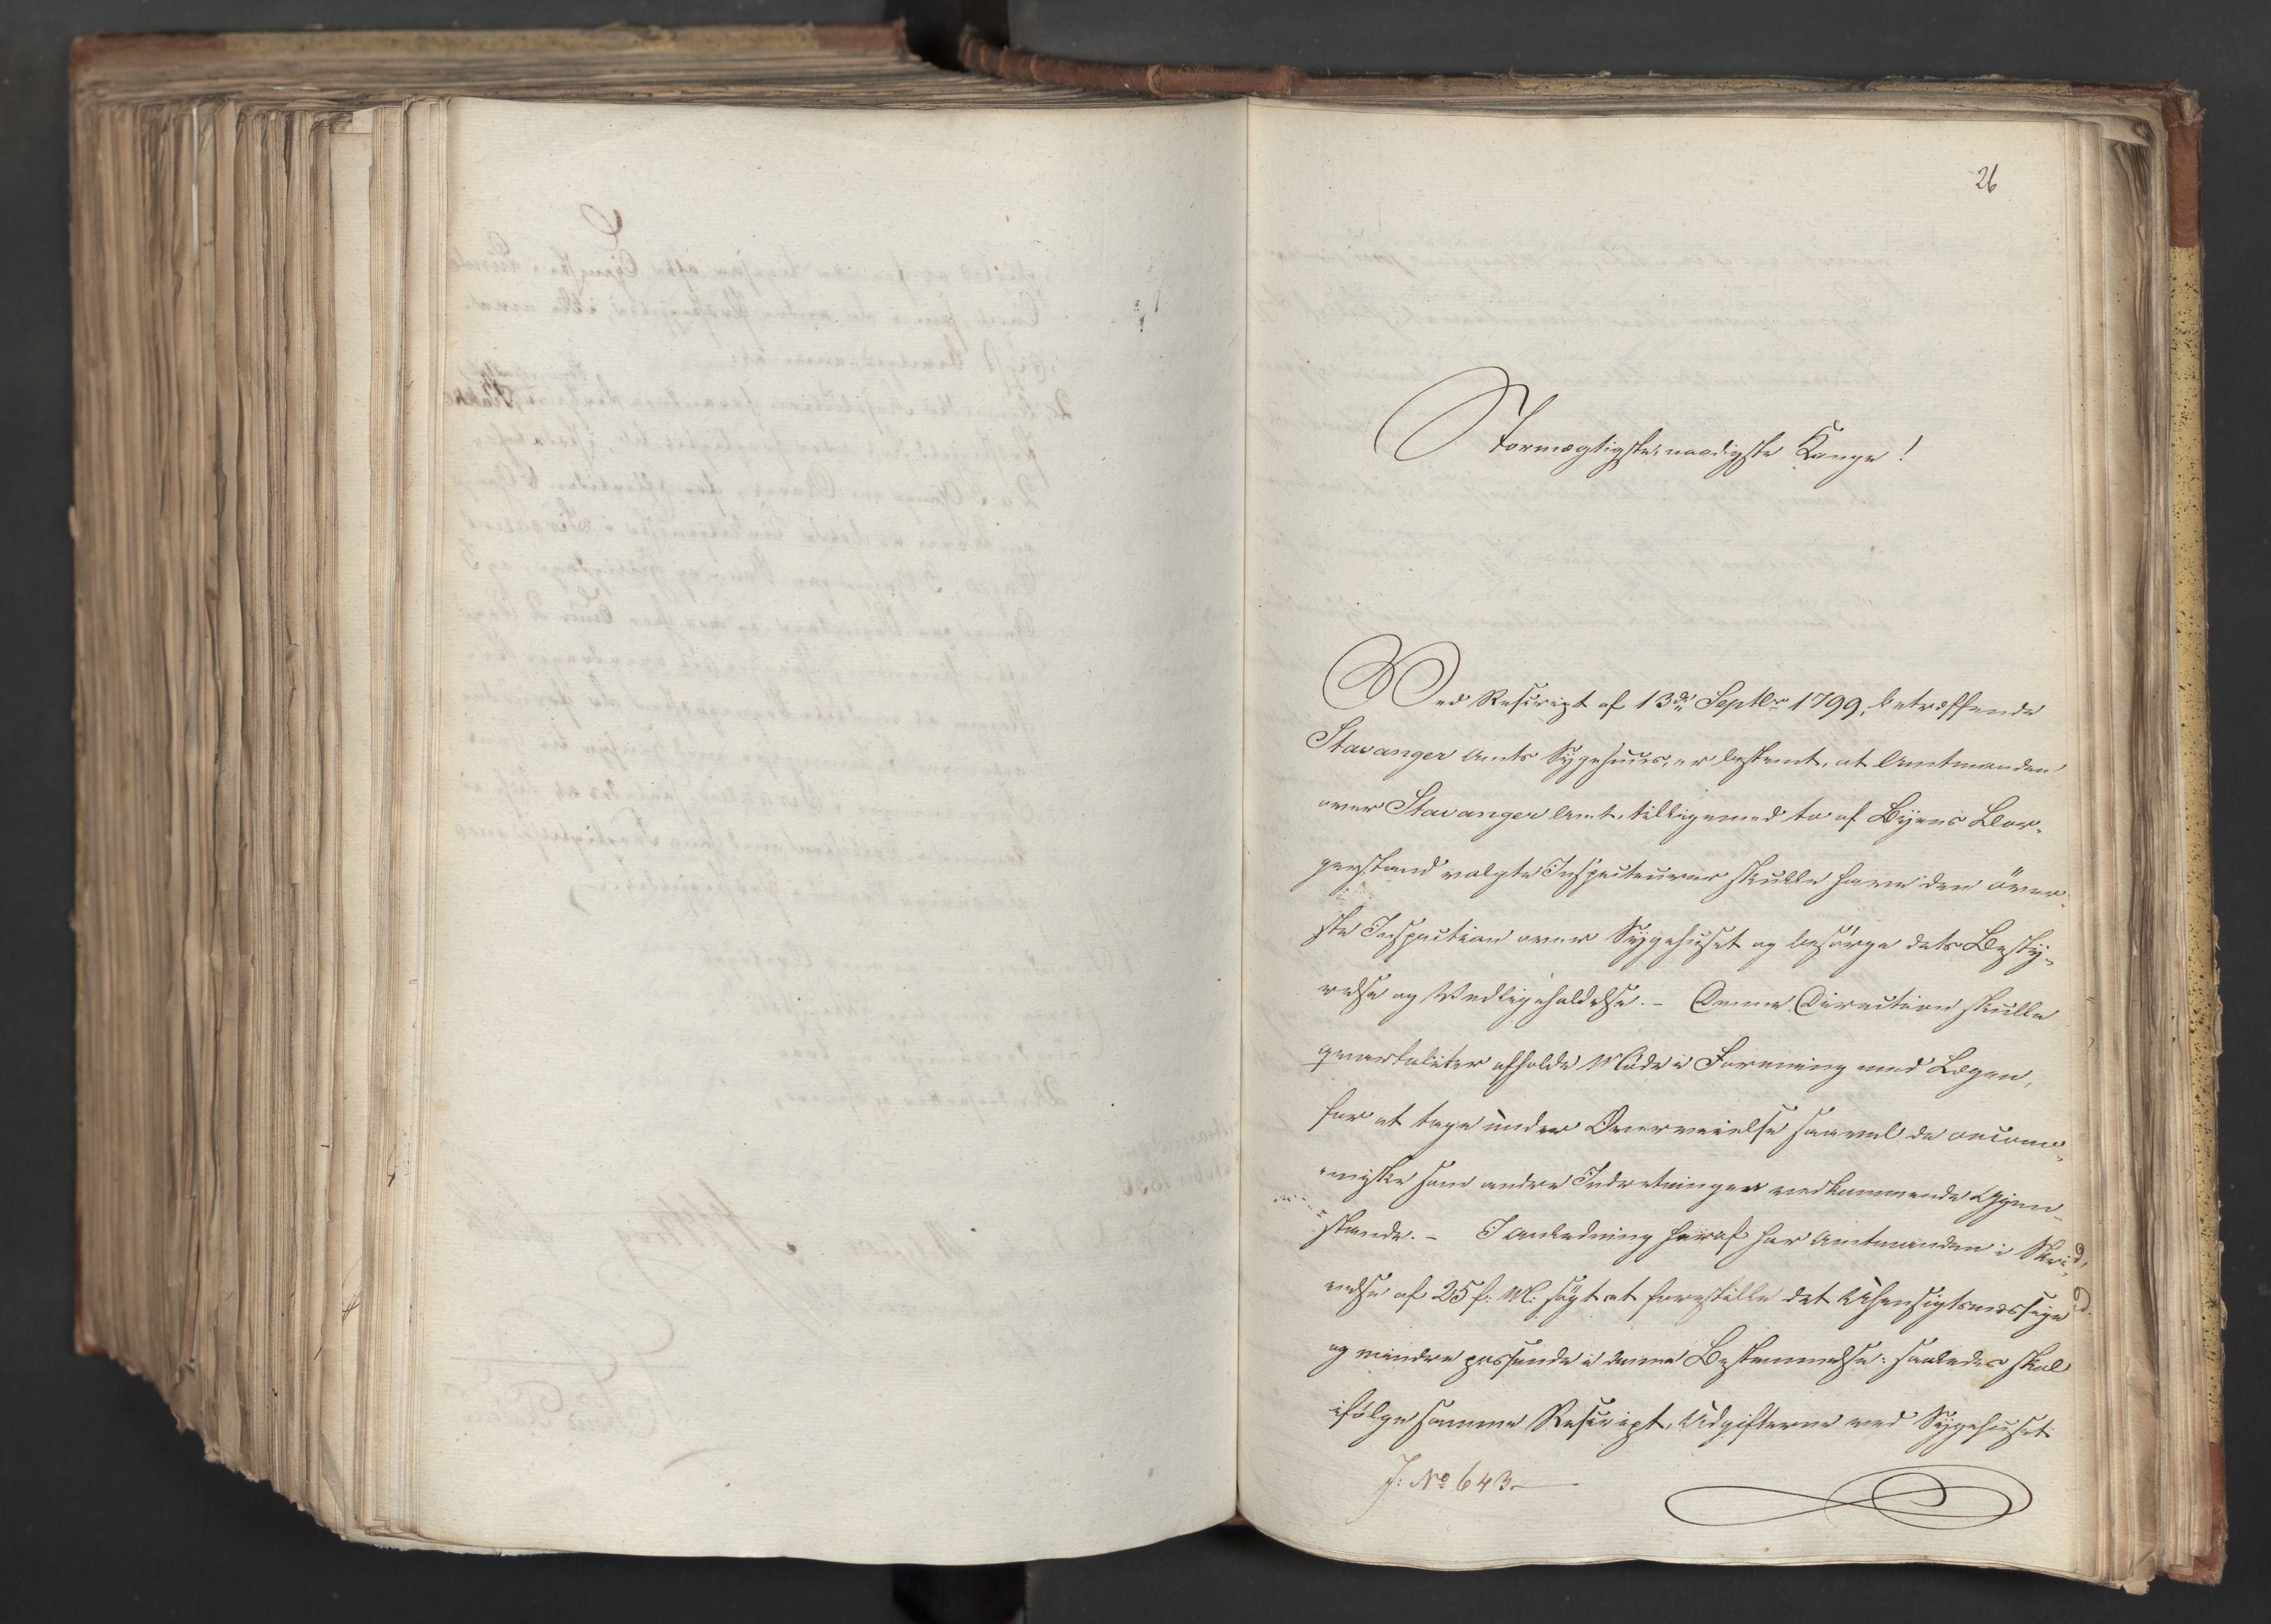 26
Stormægtigste, naadigste Konge!
Ved Rescript af 13de Septbr 1799, betræffende
Stavanger Amts Sygehuus, er bestemt, at Amtmanden
over Stavanger Amt, tilligemed to af Byens Bor-
gerstand valgte Inspecteurer skulle have den över-
ste Inspection over Sygehuset og besörge dets Besty-
relse og Vedligeholdelse. – Denne Direction skulle
qvartaliter afholde Möde i Forening med Lægen,
for at tage under Overveielse saavel de oecono-
miske som andre Indretningen vedkommende Gjen-
stande. – I Anledning heraf har Amtmanden i Skri-
velse af 25 f: M: sögt at forestille det Uhensigtsmæssige
og mindre passende i denne Bestemmelse: saaledes skal
ifölge samme Rescript, Udgifterne ved Sygehuset
J: No 643.